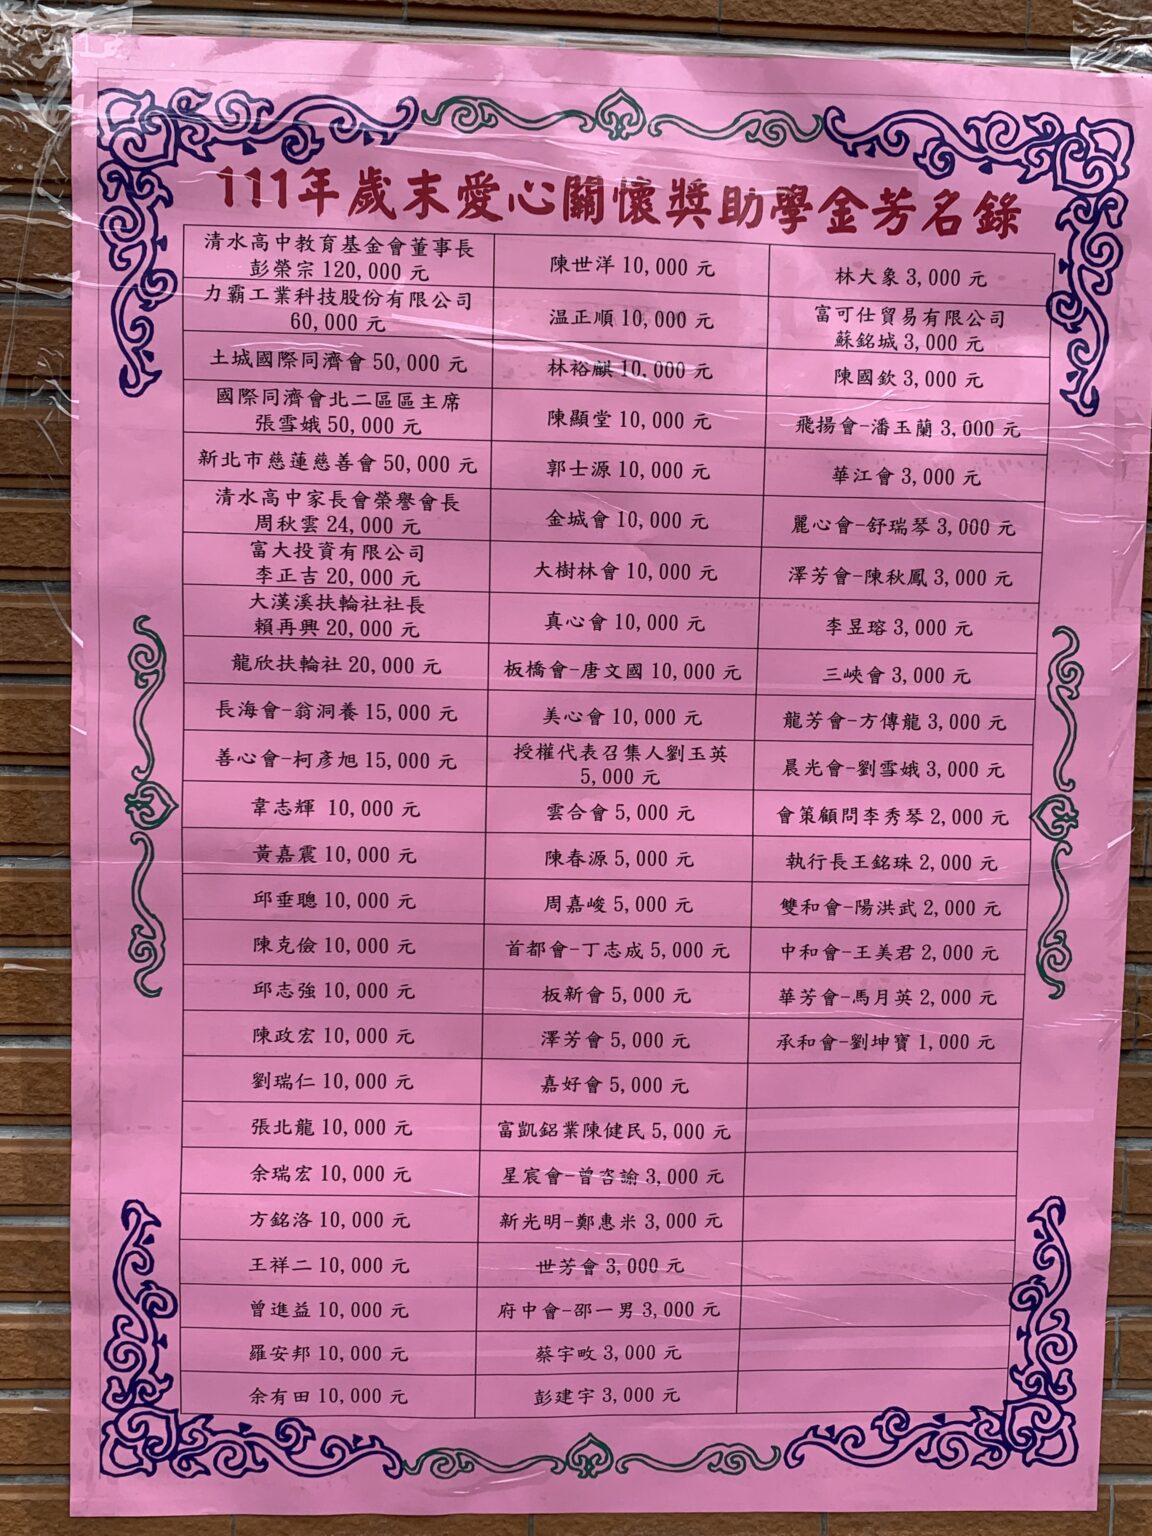 111年歲末愛心關懷獎助學金芳名錄
清水高中教育基金會董事長
彭榮宗 120,000 元
力霸工業科技股份有限公司
60,000 元
土城國際同濟會 50,000 元
國際同濟會北二區區主席
張雪娥 50,000 元
新北市慈蓮慈善會 50,000 元
清水高中家長會榮譽會長
周秋雲 24,000 元
富大投資有限公司
李正吉 20,000 元
大漢溪扶輪社社長
賴再興 20,000 元
龍欣扶輪社 20,000 元
長海會-翁洞養 15,000 元
善心會-柯彥旭 15,000 元
韋志輝 10,000 元
黃嘉震 10,000 元
邱垂聰 10,000 元
陳克儉 10,000 元
邱志強 10,000 元
陳政宏 10,000 元
劉瑞仁 10,000 元
張北龍 10,000 元
余瑞宏 10,000 元
方銘洛 10,000 元
王祥二 10,000 元
曾進益 10,000 元
羅安邦 10,000 元
余有田 10,000 元
陳世洋 10,000 元
温正順 10,000 元
林裕麒 10,000 元
陳顯堂 10,000 元
郭士源 10,000 元
金城會 10,000 元
大樹林會 10,000 元
真心會 10,000 元
板橋會-唐文國 10,000 元
美心會 10,000 元
授權代表召集人劉玉英
5,000 元
雲合會 5,000 元
陳春源 5,000 元
周嘉峻 5,000 元
首都會-丁志成 5,000 元
板新會 5,000 元
澤芳會 5,000 元
嘉好會 5,000 元
富凱鋁業陳健民 5,000 元
星宸會-曾咨諭 3,000 元
新光明-鄭惠米 3,000 元
世芳會 3,000 元
府中會-邵一男 3,000 元
蔡宇畋 3,000 元
彭建宇 3,000 元
林大象 3,000 元
富可仕貿易有限公司
蘇銘城 3,000 元
陳國欽 3,000 元
飛揚會-潘玉蘭 3,000 元
華江會 3,000 元
麗心會-舒瑞琴 3,000 元
澤芳會-陳秋鳳 3,000 元
李昱瑢 3,000 元
三峽會 3,000 元
龍芳會-方傳龍 3,000 元
晨光會-劉雪娥 3,000 元
會策顧問李秀琴 2,000 元
執行長王銘珠 2,000 元
雙和會-陽洪武 2,000 元
中和會-王美君 2,000 元
華芳會-馬月英 2,000 元
承和會-劉坤寶 1,000 元